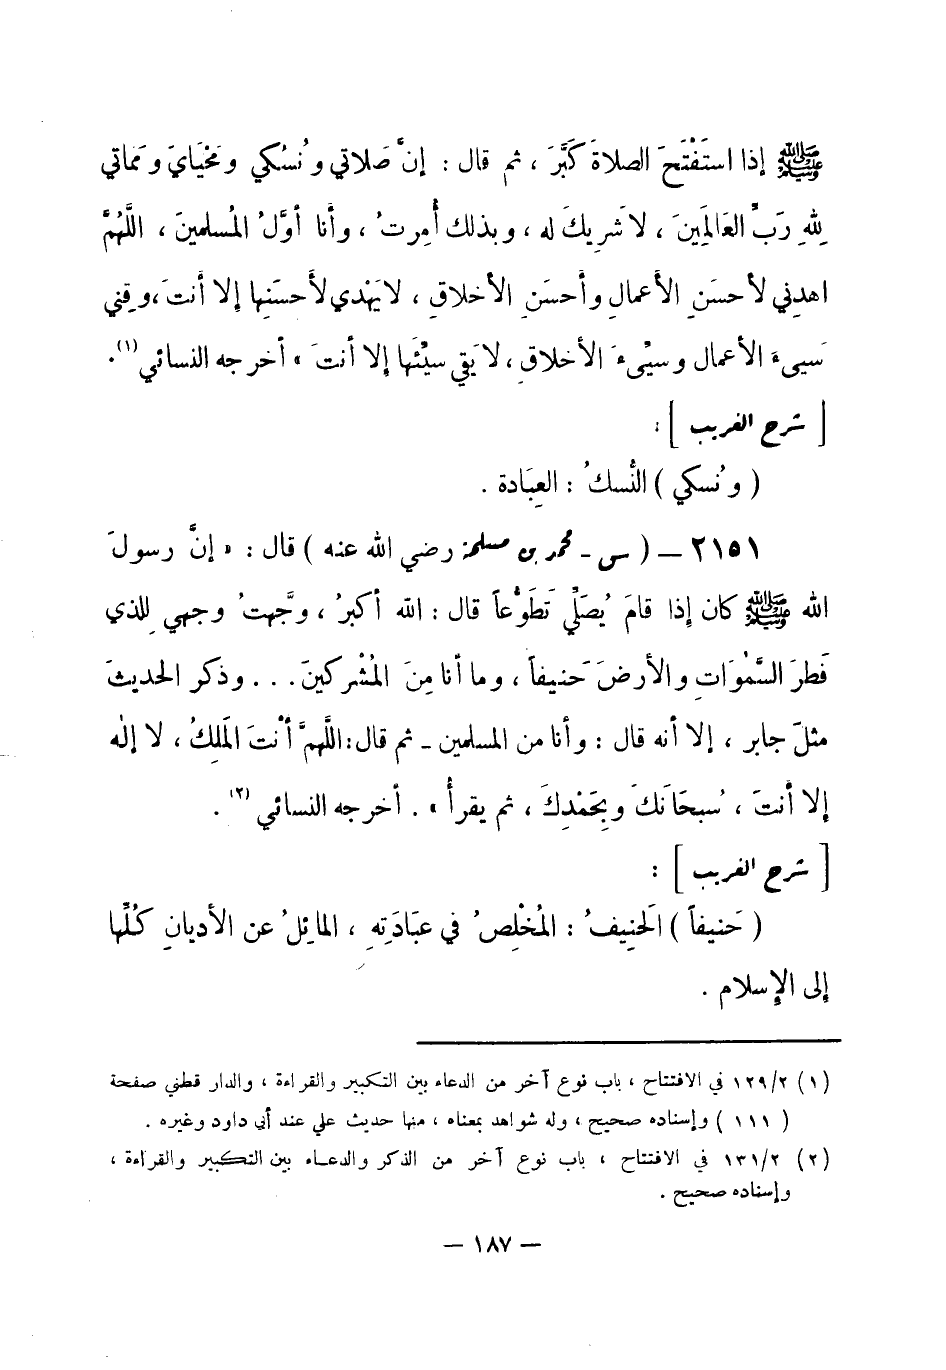 ﷺ إذا استَفْتَحَ الصلاةَ كَبَّرَ ، ثم قال : إنَّ صَلاتي ونُسُكي ومَحْيَايَ ومَماتي
لِلهِ رَبِّ العَالَمِينَ ، لا شَرِيكَ له ، وبذلك أُمِرتُ ، وأنا أوَّلُ المُسلمينَ ، اللَّهُمَّ
اهدِني لأحسَنِ الأعمالِ وأحسَنِ الأخلاقِ ، لا يَهْدي لأحسَنِها إلا أنتَ ، وقِني
سَيىءَ الأعمال وسيِّىءَ الأخلاقِ ، لا يَقي سيِّئَها إلا أنتَ » أخرجه النسائي (١) .
[ شرح الغريب ] :
( ونُسكي ) النُّسكُ : العِبَادة .
٢١٥١ – ( س - محمد بن مسلمة رضي الله عنه ) قال : « إنَّ رسولَ
الله ﷺ كان إذا قامَ يُصَلِّي تَطَوُّعاً قال : الله أكبرُ ، وجَّهتُ وجهي لِلذي
فَطرَ السَّمٰوَاتِ والأرضَ حَنيفاً ، وما أنا مِنَ المُشْركينَ . . . وذكر الحديثَ
مثلَ جابر ، إلا أنه قال : وأنا من المسلمين - ثم قال : اللَّهمَّ أنْتَ المَلِكُ ، لا إلٰه
إلا أنتَ ، سُبحَانَكَ وبِحَمْدِكَ ، ثم يقرأُ » . أخرجه النسائي (٢) .
[ شرح الغريب ] :
( حَنيفاً ) الَحنِيفُ : المُخْلِصُ في عبَادَتِهِ ، المائِلُ عن الأديانِ كُلِّها
إلى الإسلام .
(١) ١٢٩/٢ في الافتتاح ، باب نوع آخر من الدعاء بين التكبير والقراءة ، والدار قطني صفحة
( ١١١ ) وإسناده صحيح ، وله شواهد بمعناه ، منها حديث علي عند أبي داود وغيره .
(٢) ١٣١/٢ في الافتتاح ، باب نوع آخر من الذكر والدعاء بين التكبير والقراءة ،
وإسناده صحيح .
– ١٨٧ –